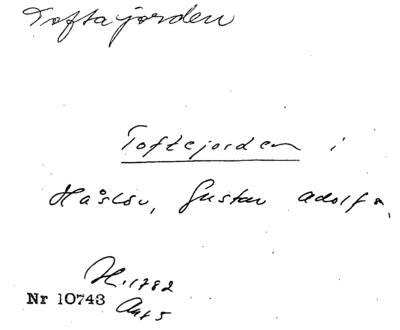 Toftajorden
Toftejorden i
Håslöv, Gustav Adolf s.
H. 1782
Nr 10743
Akt 5